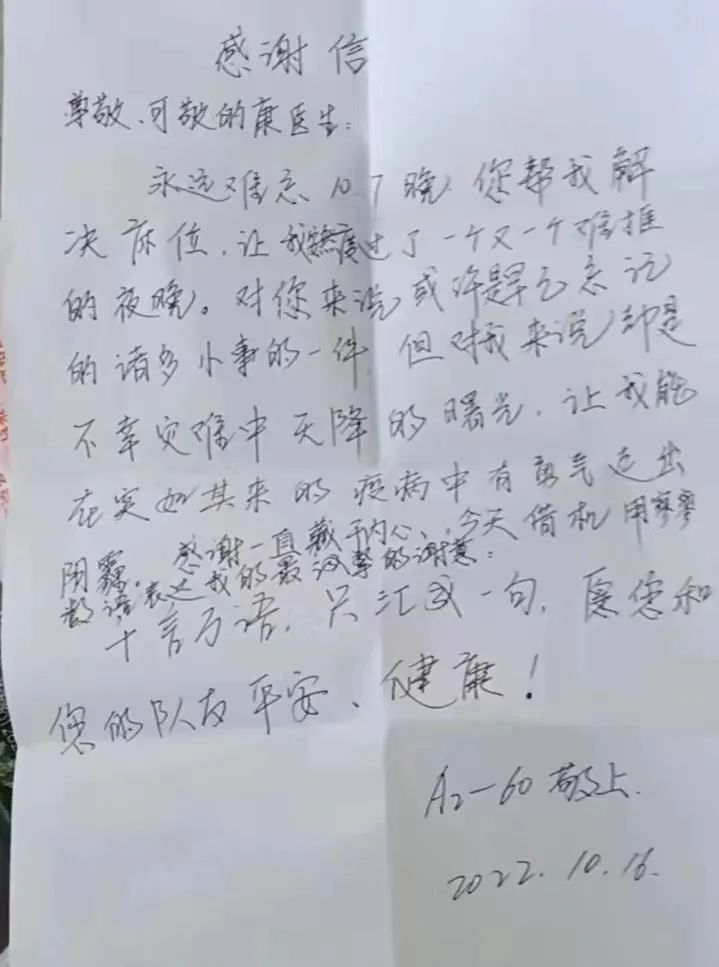 感谢信
尊敬、可敬的康医生:
永远难忘10.7晚您帮我解
决床位,让我度过了一个又一个难捱
的夜晚。对您来说或许是早已忘记
的诸多小事的一件,但对我来说却是
不幸灾难中天降的曙光,让我能
在突如其来的疫病中有勇气走出
阴霾。感谢一直藏于内心,今天借机用寥寥
数语表达我的最诚挚的谢意:
千言万语,只汇成一句,愿您和
您的队友平安、健康!
A2-60敬上.
2022.10.16.